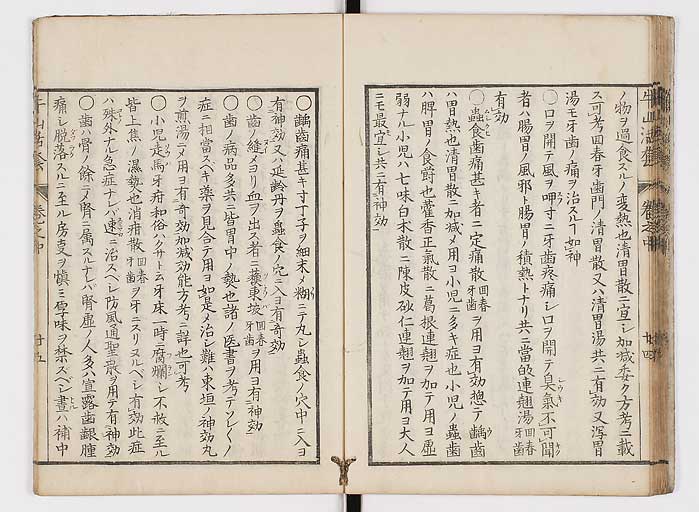 ノ物ヲ過食スルノ変熱也清胃散ニ宜シ加減委ク方考ニ載
ス可考回春牙歯門ノ清胃散又ハ清胃湯共ニ有効又瀉胃
湯モ牙歯ノ痛ヲ治スルヿ如神
〇口ヲ開テ風ヲ呷寸ニ牙歯疼痛シ口ヲ開テ臭氣不可聞
者ハ腸胃ノ風邪ト腸胃ノ積熱トナリ共ニ當的連翹湯回春牙歯
有効
〇蟲食歯痛甚キ者ニ一定痛散回春牙歯ヲ用ヨ有効惣テ齲歯
ハ胃熱也清胃散ニ加減メ用ヨ小児ニ多キ症也小児ノ蟲歯
ハ脾胃ノ食爵也藿香正氣散ニ葛根連翹ヲ加テ用ヨ虚
弱ナル小児ハ七味白朮散ニ陳皮砂仁連翹ヲ加テ用ヨ大人
ニモ最宜シ共ニ有神効
牛山活套 巻之中 廿四
〇齲歯痛甚キ寸丁子ヲ細末メ糊ニテ丸シ蟲食ノ穴中ニ入ヨ
有神効又ハ延齢丹ヲ蟲食ノ穴ニ入ヨ有奇効
〇歯ノ縫メヨリ血ヲ出ス者ニ蘓東坡回春牙歯ヲ用ヨ有神効
〇歯ノ病品多共ニ皆胃中ノ熱也諸ノ医書ヲ考テソレ〱ノ
症ニ相當スベキ藥ヲ見合テ用ヨ如是メ治シ難ハ東垣ノ神効丸
ヲ煎湯ニメ用ヨ有奇効加減効能方考ニ詳也可考
〇小児走馬牙疳和俗ハクサト云牙床一時ニ腐爛シ不救ニ至ル
皆上焦ノ濕熱也消疳散回春牙歯ヲ牙ニスリヌルベシ有効此症
ハ殊外ナル急症ナレハ速ニ治スベシ防風通聖散ヲ用テ有神効
〇歯ハ骨ノ餘ニテ腎ニ属スルナレバ腎虚ノ人多ハ宣露歯齦腫
痛シ脱落スルニ至ル房叓ヲ慎ミ厚味ヲ禁スベシ晝ハ補中
牛山活套 巻之中 廿五